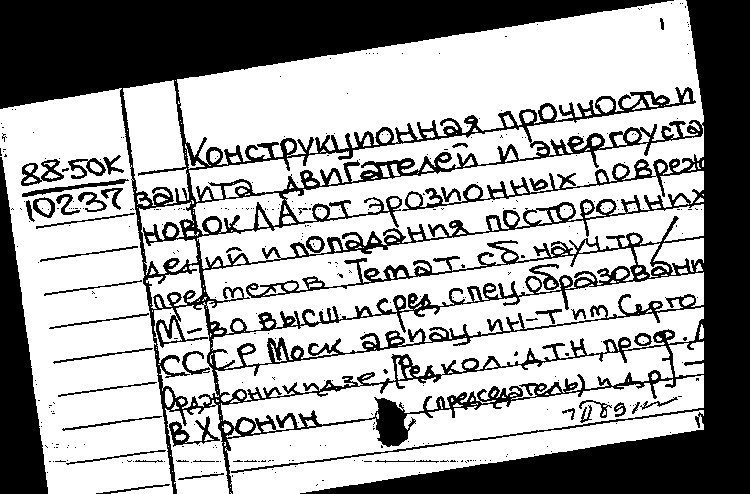 1
88-50К
10237
Конструкционная прочность и
защита двигателей и энергоуста
новок ЛА от эрозионных повреж
дений и попадания посторонних
предметов: Темат. сб. науч. тр. /
М-во высш. и сред. спец. образовани
СССР, Моск. авиац. ин-т им. Серго
Орджоникидзе; [Редкол.: д.т.н., проф. Д
В. Хронин (председатель) и др.] -